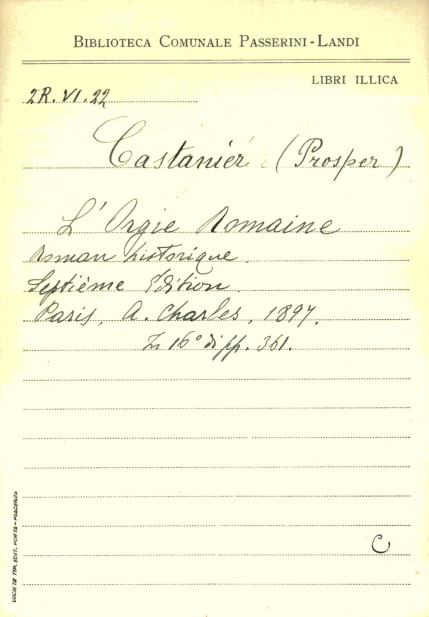 BIBLIOTECA COMUNALE PASSERINI-LANDI
LIBRI ILLICA
2R. VI. 22
Castanier (Prosper)
L'Orgie Romaine
Roman historique.
Septième Edition.
Paris, A. Charles, 1897.
In 16° di pp. 361.
C